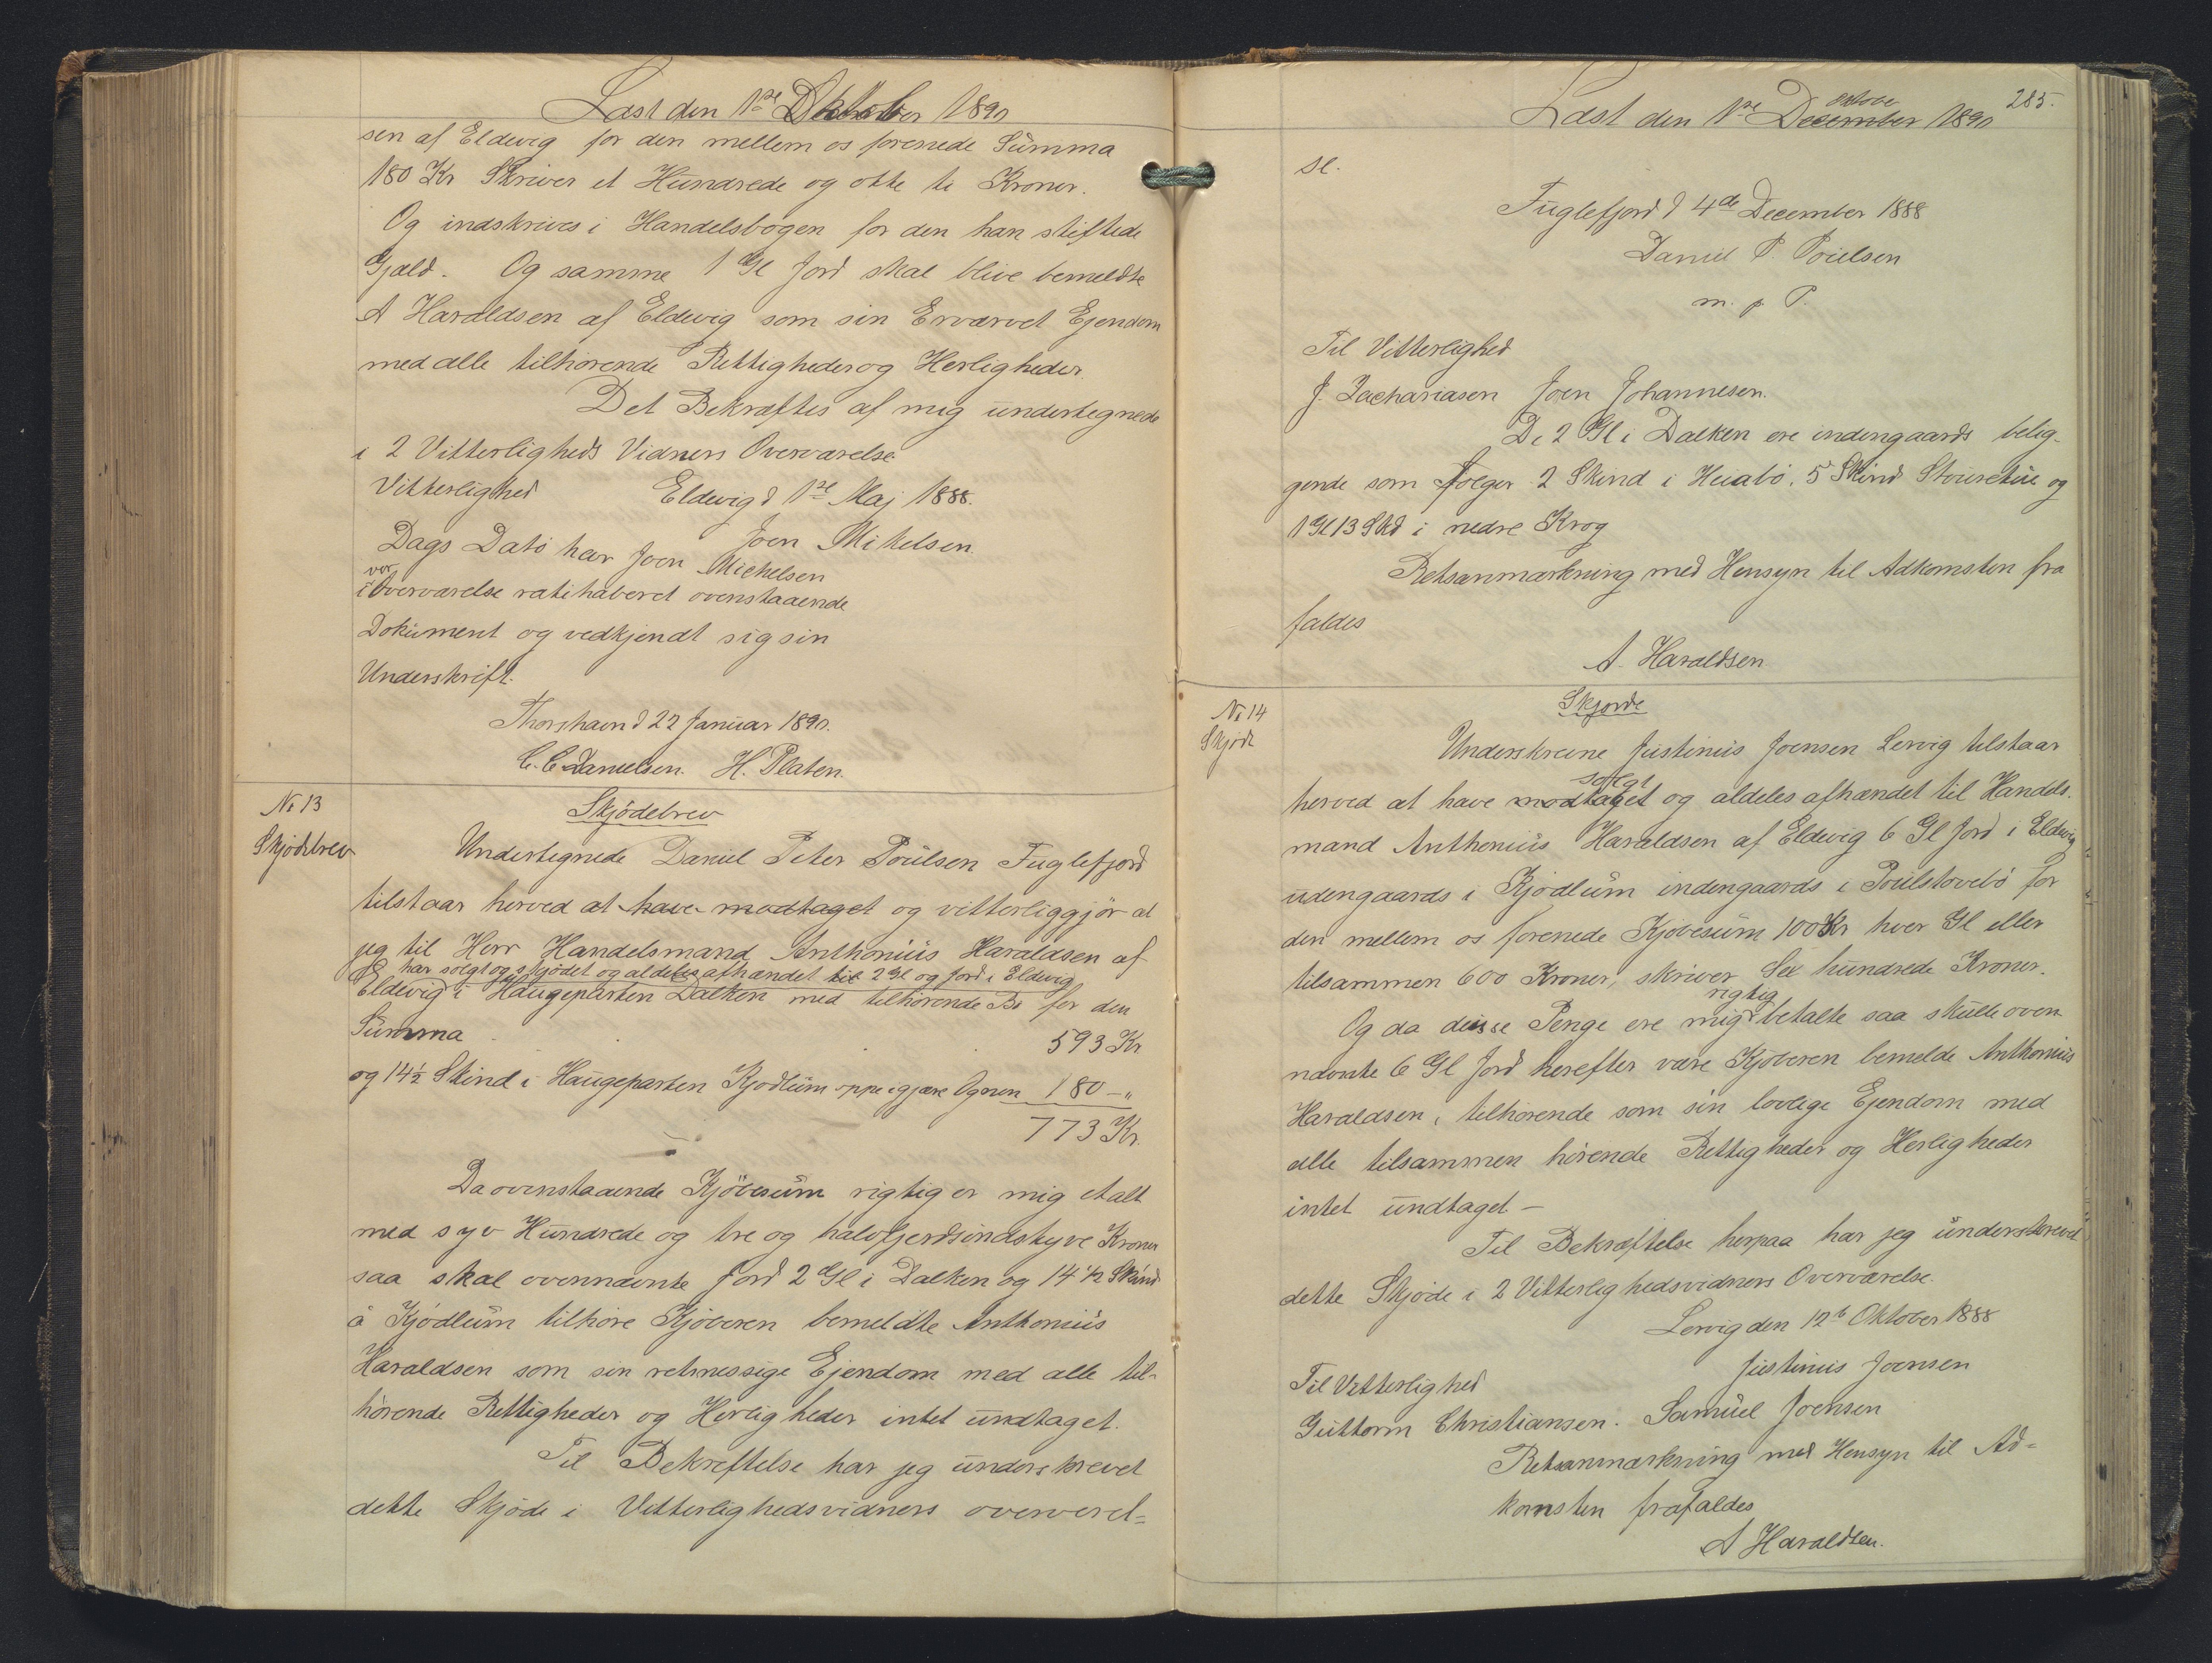 Læst den 1ste Oktober 1890
sen af Eldevig for den mellem os forenede Summa
180 Kr Skriver et Hundrede og otte ti Kroner.
Og indskrives i Handelsbogen for den han stiftede
Gjæld. Og samme 1 Gl Jord skal blive bemeldte
A Haraldsen af Eldevig som sin Ervarvet Ejendom
med alle tilhörende Rettigheder og Herligheder.
Det Bekræftes af mig undertegnede
i 2 Vitterligheds Vidners Overværelse.
Vitterlighed Eldevig d 1ste Maj 1888.
Joen Mikelsen.
Dags Dato har Joen Michelsen
i vor Overværelse ratihaberet ovenstaaende
Dokument og vedkjendt sig sin
Underskrift.
Thorshavn d 22 Januar 1890.
C. C. Danielsen. H. Platen.
No 13 Skjödebrev
Skjödebrev Undertegnede Daniel Peter Poulsen Fuglefjord
tilstaar herved at have modtaget og vitterliggjör at
jeg til Herr Handelsmand Anthonius Haraldsen af
har solgt og skjödet og aldeles afhændet til 2 Gl og Jord i Eldevig
Eldevig i Haugeparten Dalken med tilhörende Bö for den
Summa 593 Kr
og 14½ Skind i Haugeparten Kjodlum oppe igjære Ognun 180 - "
773 Kr.
Da ovenstaaende Kjöbesum rigtig er mig etalt
med syv Hundrede og tre og halvfjerdsindstyve Kroner
saa skal ovennævnte Jord 2 Gl i Dalken og 14 ½ Skind
å Kjódlum tilhöre Kjöberen bemeldte Anthonius
Haraldsen som sin retmessige Ejendom med alle til-
hörende Rettigheder og Herligheder intet undtaget.
Til Bekreftelse har jeg underskrevet
dette Skjöde i Vitterlighedsvidners oververel=
Læst den 1ste December Oktobe 1890 285.
se.
Fuglefjord d 4de December 1888
Daniel P. Poulsen
m. p. P.
Til Vitterlighed
J. Zachariasen Joen Johannesen.
De 2 Gl i Dalken ere indengaards belig-
gende som følger 2 Skind i Heiabö, 5 Skind Stouretúe og
1 Gl 13 Skd i nedre Krog
Retsanmærkning med Hensyn til Adkomsten fra
faldes
A. Haraldsen
No 14 Skjøde
Skjöde Underskrevne Justinus Joensen Lervig tilstaar
herved at have modtaget solgt og aldeles afhændet til Handels-
mand Anthonius Haraldsen af Eldevig 6 Gl Jord i Eldevig
udengaards i Kjodlum indengaards i Poulstovebö for
den mellem os forenede Kjöbesum 100 Kr hver Gl eller
tilsammen 600 Kroner, skriver Sex hundrede Kroner.
Og da disse Penge ere mig rigtig betalte saa skulle oven
nævnte 6 Gl Jord herefter være Kjöberen bemelde Anthonius
Haraldsen, tilhörende som sin lovlige Ejendom med
alle tilsammen hörende Rettigheder og Herligheder
intet undtaget -
Til Bekræftelse herpaa har jeg underskrevet
dette Skjöde i 2 Vitterlighedsvidners Overværelse.
Lervig den 12te Oktober 1888
Justinus Joensen
Til Vitterlighed
Guttorm Christiansen. Samuel Joensen
Retsanmærkning med Hensyn til Ad=
komsten frafaldes
A Haraldsen.